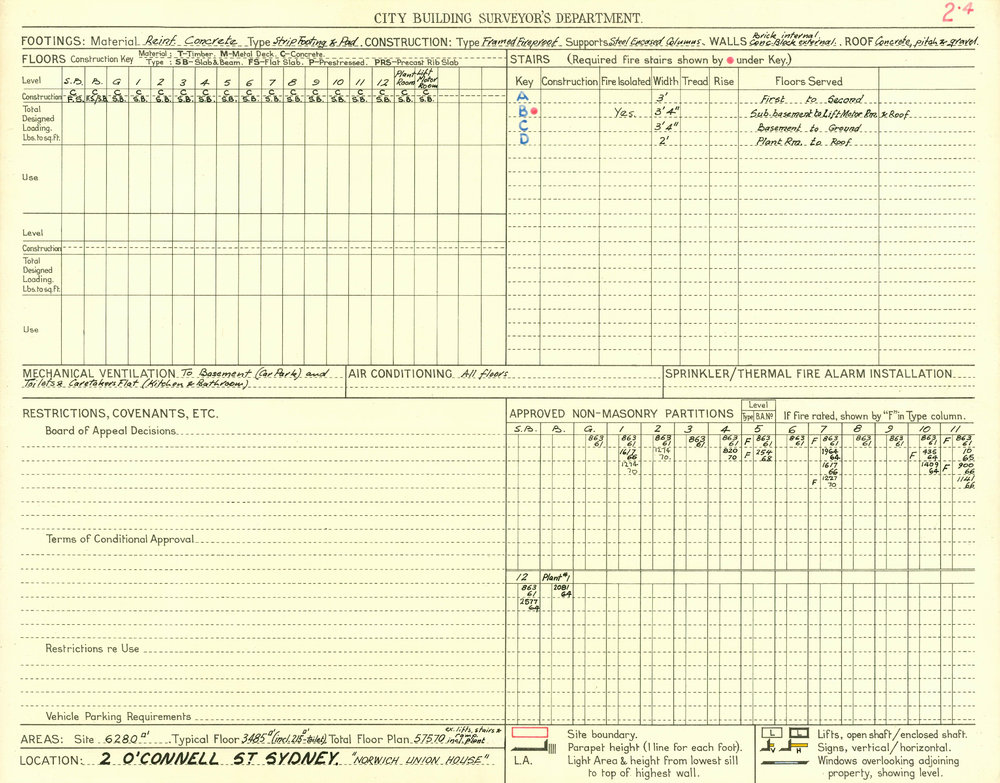 CITY BUILDING SURVEYOR'S DEPARTMENT.
2·4
FOOTINGS: Material Reinf. Concrete Type Strip Footing & Pad. CONSTRUCTION: Type Framed Fireproof Supports Steel Encased Columns. WALLS Brick, internal. Conc. Block external. ROOF Concrete, pitch & gravel.
FLOORS Construction Key Material: T-Timber. M-Metal Deck. C-Concrete.
Type: SB-Slab & Beam. FS-Flat Slab. P-Prestressed. PRS-Precast Rib Slab
Level S.B. B. G 1 2 3 4 5 6 7 8 9 10 11 12 Plant Room Lift Motor Room
Construction C C C C C C C C C C C C C C C C C
F.S. F.S/S.B. S.B. S.B. S.B. S.B. S.B. S.B. S.B. S.B. S.B. S.B. S.B. S.B. S.B. S.B. S.B.
Total
Designed
Loading.
Lbs. to sq. ft.
Use
Level
Construction
Total
Designed
Loading.
Lbs. to sq. ft.
Use
STAIRS (Required fire stairs shown by under Key.)
Key Construction Fire Isolated Width Tread Rise Floors Served
A 3' First to Second
B Yes. 3' 4" Sub-basement to Lift Motor Rm. & Roof
C 3' 4" Basement to Ground
D 2' Plant Rm. to Roof
MECHANICAL VENTILATION. To Basement (Car Park) and
Toilets & Caretakers Flat (Kitchen & Bathroom)
AIR CONDITIONING All floors
SPRINKLER/THERMAL FIRE ALARM INSTALLATION
RESTRICTIONS, COVENANTS, ETC.
Board of Appeal Decisions
Terms of Conditional Approval
Restrictions re Use
Vehicle Parking Requirements
APPROVED NON-MASONRY PARTITIONS Level Type B.A.Nº If fire rated, shown by "F" in Type column.
S.B. B. G. 1 2 3 4 5 6 7 8 9 10 11
863 863 863 863 863 F 863 863 F 863 863 863 863 F 863
61 61 61 61 61 61 61 61 61 61 61 61
1617 1274 820 F 254 1964 F 436 10
66 70. 70 68 64 64 65
1274 1617 1409 F 900
70 66 64 66
F 1227 1141
70 66
12 Plant #1
863 2081
61 64
2577
64
AREAS: Site 6280 □' Typical Floor 3485 □' (incl. 215 □' toilet) Total Floor Plan 57570 ex. lifts, stairs & ramp. incl. plant
LOCATION: 2 O'CONNELL ST SYDNEY. "NORWICH UNION HOUSE"
Site boundary.
Parapet height (1 line for each foot).
L.A. Light Area & height from lowest sill
to top of highest wall.
L L Lifts, open shaft/enclosed shaft.
V H Signs, vertical/horizontal.
Windows overlooking adjoining
property, showing level.